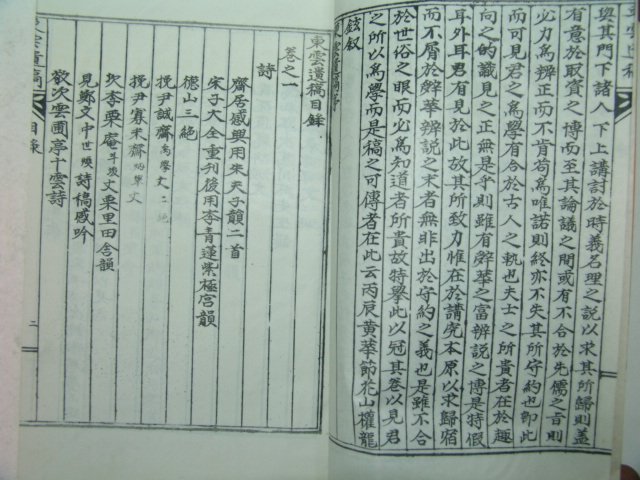 與其門下諸人上下講討於時義名理之說以求其所歸則盖
有意於取資之博而至其論議之間或有不合於先儒之旨則
必力爲辨正而不肯苟爲唯諾則終亦不失其所守約也卽此
而可見君之爲學有合於古人之軌也夫士之所貴者在於趣
向之的識見之正無是乎則雖有辭華之富辨說之博是特假
耳外耳君有見於此故其所致力惟在於講究本原以求歸宿
而不屑於辭華辨說之求者無非出於守約之義也是雖不合
於世俗之眼而必爲知道者所貴故特擧此以冠其卷以見君
之所以爲學而是稿之可傳者在此云丙辰黃華節花山權龍
鉉叙
東雲遺稿目錄
卷之一
詩
齋居感興用朱夫子韻二首
宋子大全重刊後用李青蓮紫極宮韻
德山三絶
挽尹誠齋
挽尹寒齋
次李栗庵丈栗里田舍韻
見鄭文中世煥詩稿感吟
敬次雲圃亭千雲詩
東雲遺稿
目錄
二